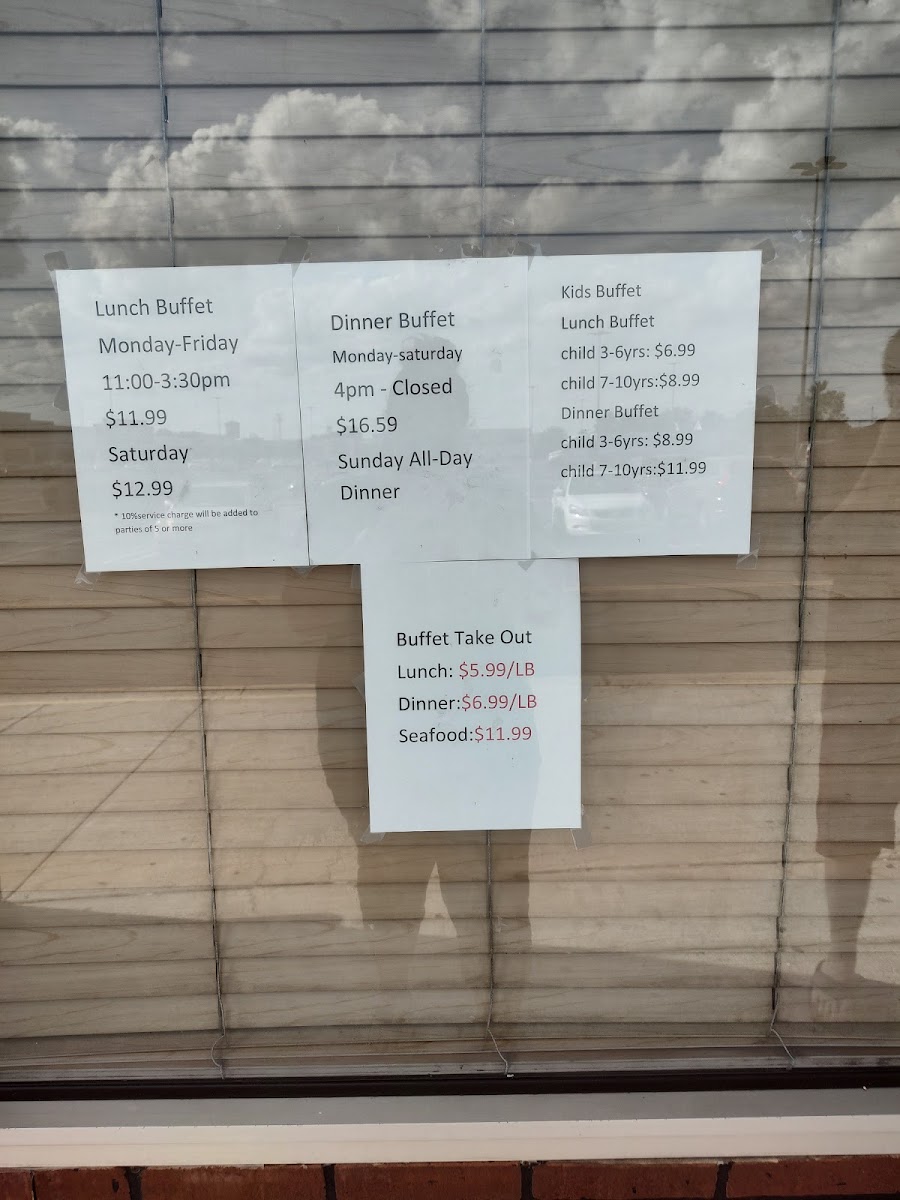 Lunch Buffet
Monday-Friday
11:00-3:30pm
$11.99
Saturday
$12.99
* 10%service charge will be added to
parties of 5 or more
Dinner Buffet
Monday-saturday
4pm - Closed
$16.59
Sunday All-Day
Dinner
Kids Buffet
Lunch Buffet
child 3-6yrs: $6.99
child 7-10yrs:$8.99
Dinner Buffet
child 3-6yrs: $8.99
child 7-10yrs:$11.99
Buffet Take Out
Lunch: $5.99/LB
Dinner:$6.99/LB
Seafood:$11.99